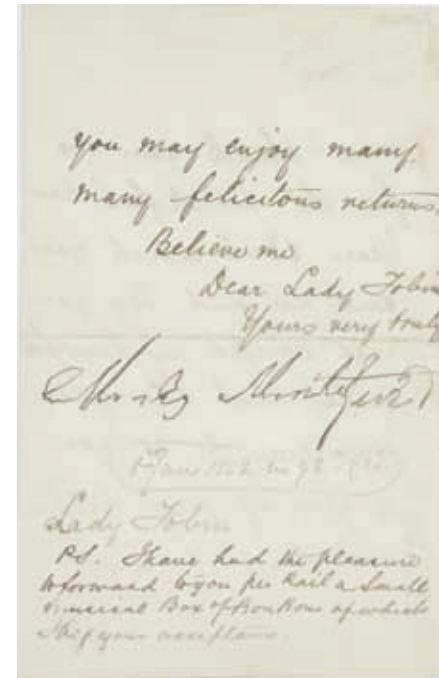 you may enjoy many
many felicitous returns
Believe me
Dear Lady Tobin
Yours very truly
Moses Montefiore
Lady Tobin
P.S. I have had the pleasure
to forward to you per Rail a Small
Box of BonBons of which
I beg your acceptance.